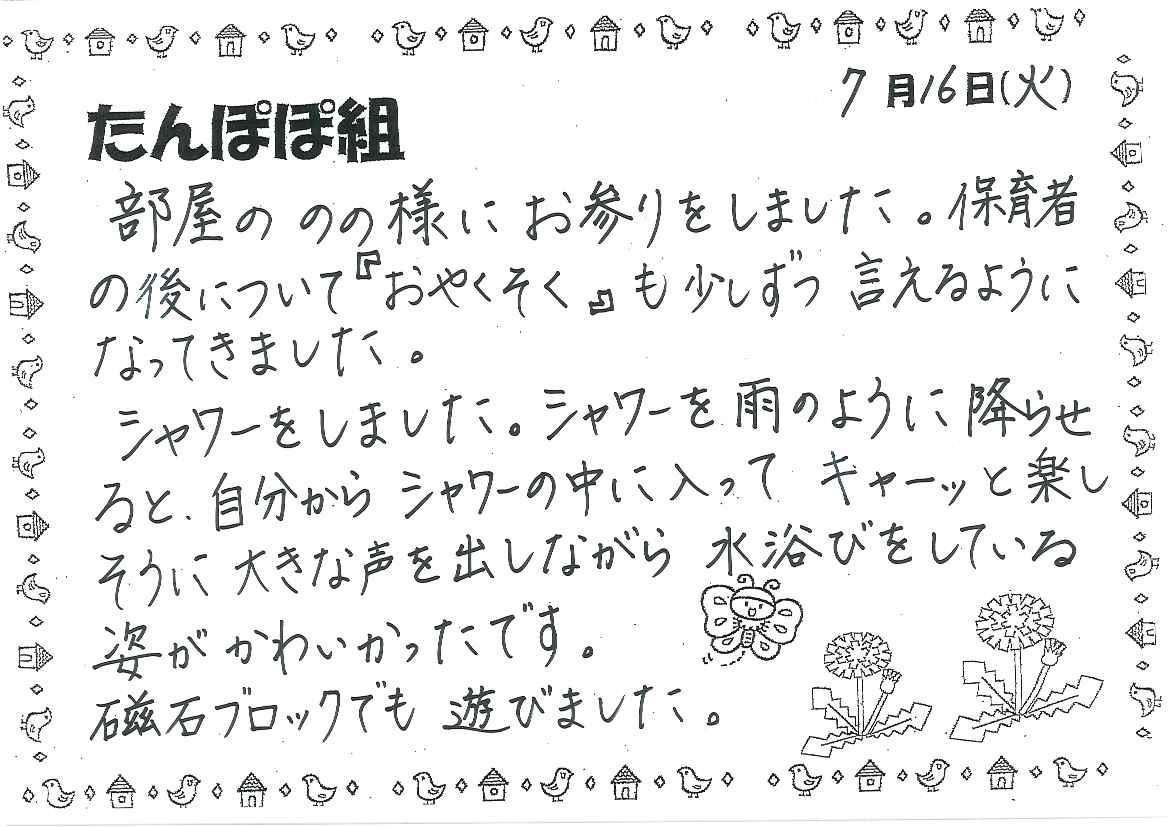 7月16日(火)
たんぽぽ組
部屋の のの様に お参りをしました。保育者
の後について『おやくそく』も少しずつ 言えるように
なってきました。
シャワーをしました。シャワーを雨のように降らせ
ると、自分から シャワーの中に入って キャーッと楽し
そうに大きな声を出しながら 水浴びをしている
姿が かわいかったです。
磁石ブロックでも 遊びました。